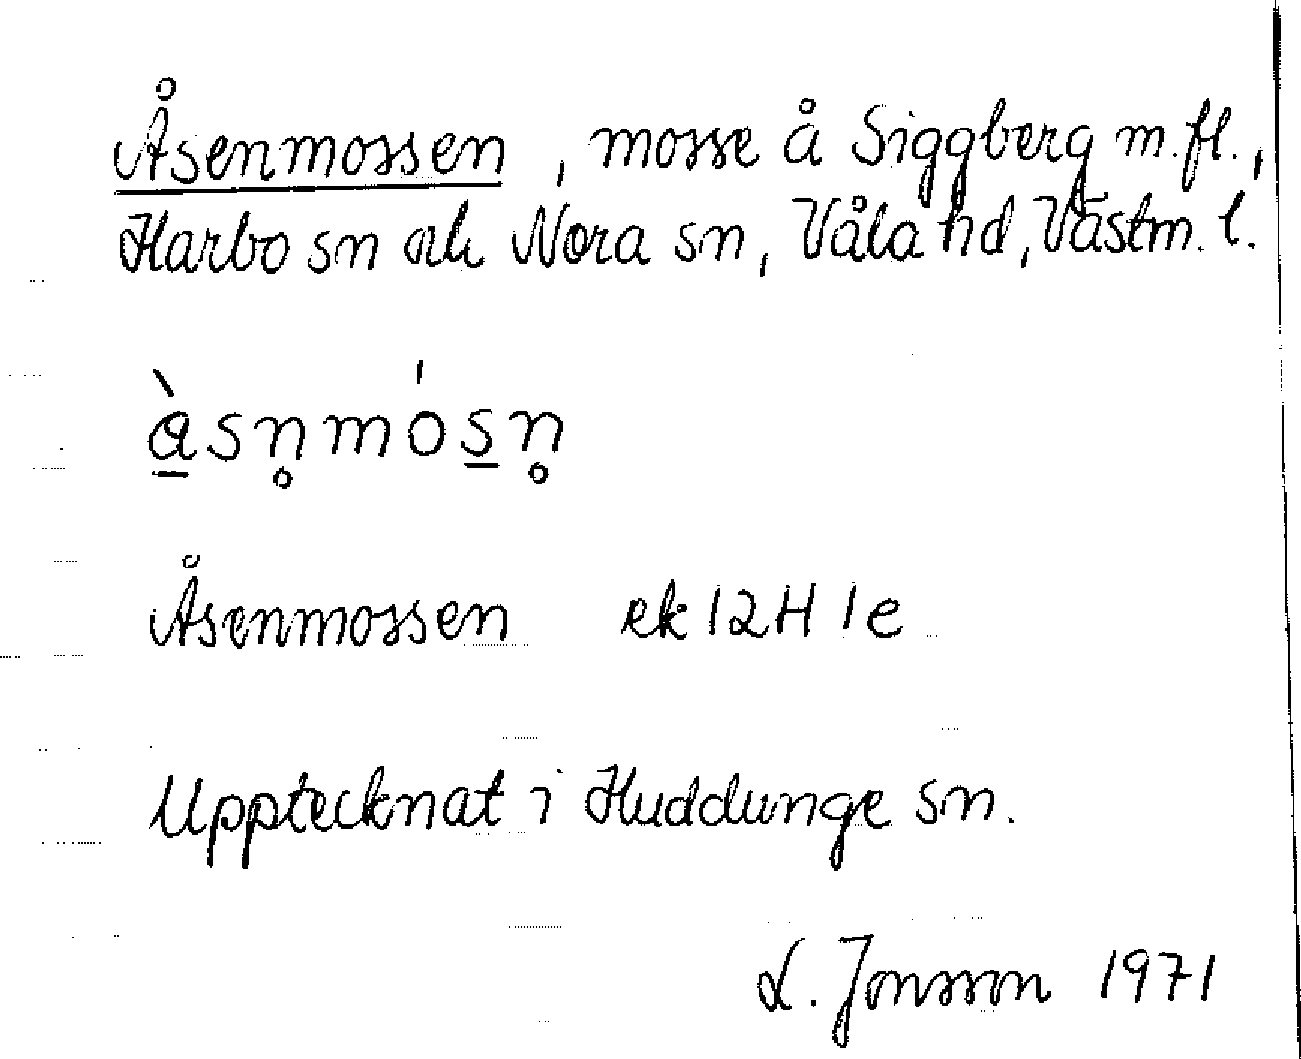 Åsenmossen, mosse å Siggberg m.fl.,
Harbo sn och Nora sn, Våla hd, Västm. l.
à̲sn̥mós̲n̥
Åsenmossen ek 12H 1e
Upptecknat i Huddunge sn.
L. Jonsson 1971